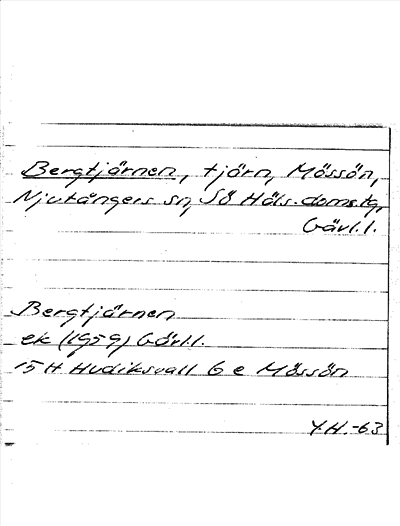 Bergtjärnen, tjärn, Mössön,
Njutångers sn, Sö Häls. doms.tg,
Gävl.l.
Bergtjärnen
ek (1959) Gävl.l.
15 H Hudiksvall 6 e Mössön
Y.H.-63